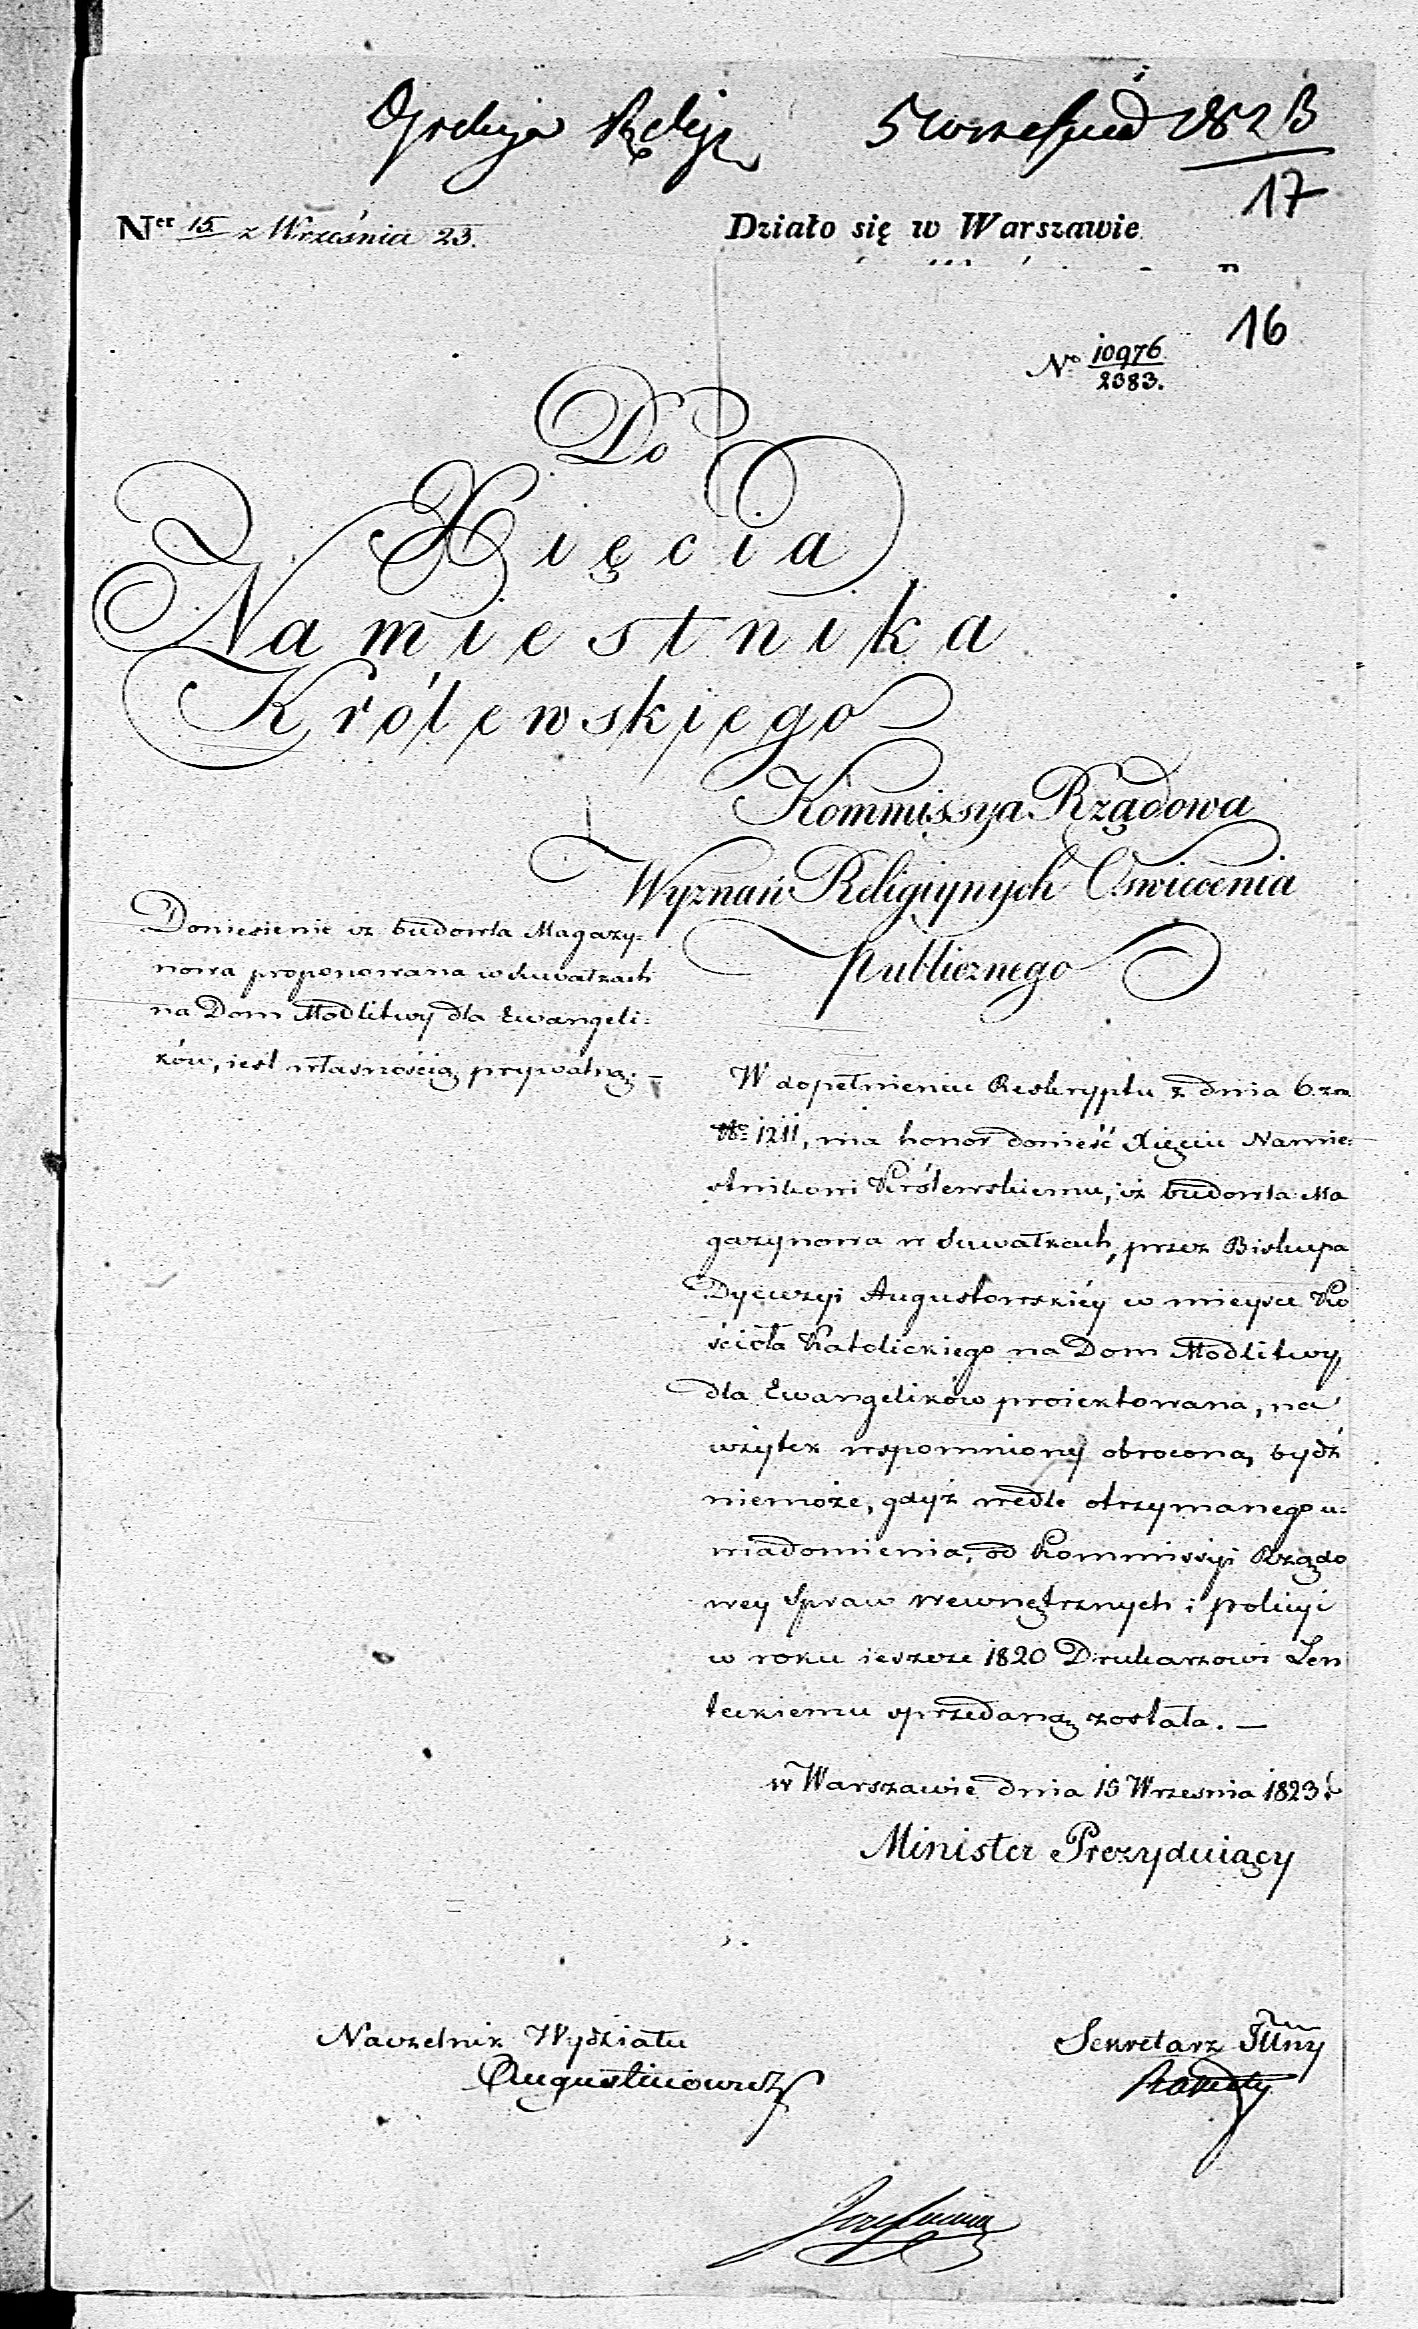 5 Września 1823
17
Ner 15 z Września 23.
Działo się w Warszawie
16
No 10976
2383.
Do
Xięcia
Namiestnika
Królewskiego
Kommissya Rządowa
Wyznań Religiynych Oswiecenia
publicznego
Doniesienie iż budowla Magazy-
nowa proponowana w Suwałkach
na Dom Modlitwy dla Ewangeli-
ków, iest własnością prywatną. —
W dopełnieniu Reskryptu z dnia 6. z. m.
No 1211, ma honor donieść Xięciu Namie-
stnikowi Królewskiemu, iż budowla Ma
gazynowa w Suwałkach, przez Biskupa
Dyecezyi Augustowskiéy w mieysce Ko
ścioła Katolickiego na Dom Modlitwy,
dla Ewangelików proiektowana, na
użytek wspomniony obroconą, bydź
niemoże, gdyż wedle otrzymanego u-
wiadomienia, od Kommissyi Rządo
wey Spraw wewnętrznych i policyi
w roku ieszcze 1820 Drukarzowi Len
teckiemu sprzedaną została. —
w Warszawie dnia 15 Wrzesnia 1823 r.
Minister Prezyduiący
Naczelnik Wydziału
Augustinowicz
Sekretarz Jlny